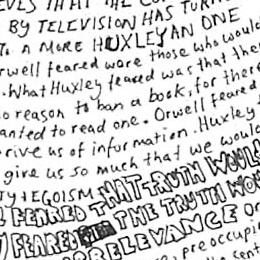 THAT THE
BY TELEVISION HAS TURN
TO A MORE HUXLEYAN ONE
rwell feared were those who would
. What Huxley feared was that ther
o reason to ban a book, for there
anted to read one. Orwell feared
rive us of information. Huxley f
give us so much that we would
TY + EGOISM THAT TRUTH WOUL
FEARED THE TRUTH WO
FEARED
IRRELEVANCE Or
preoccupi